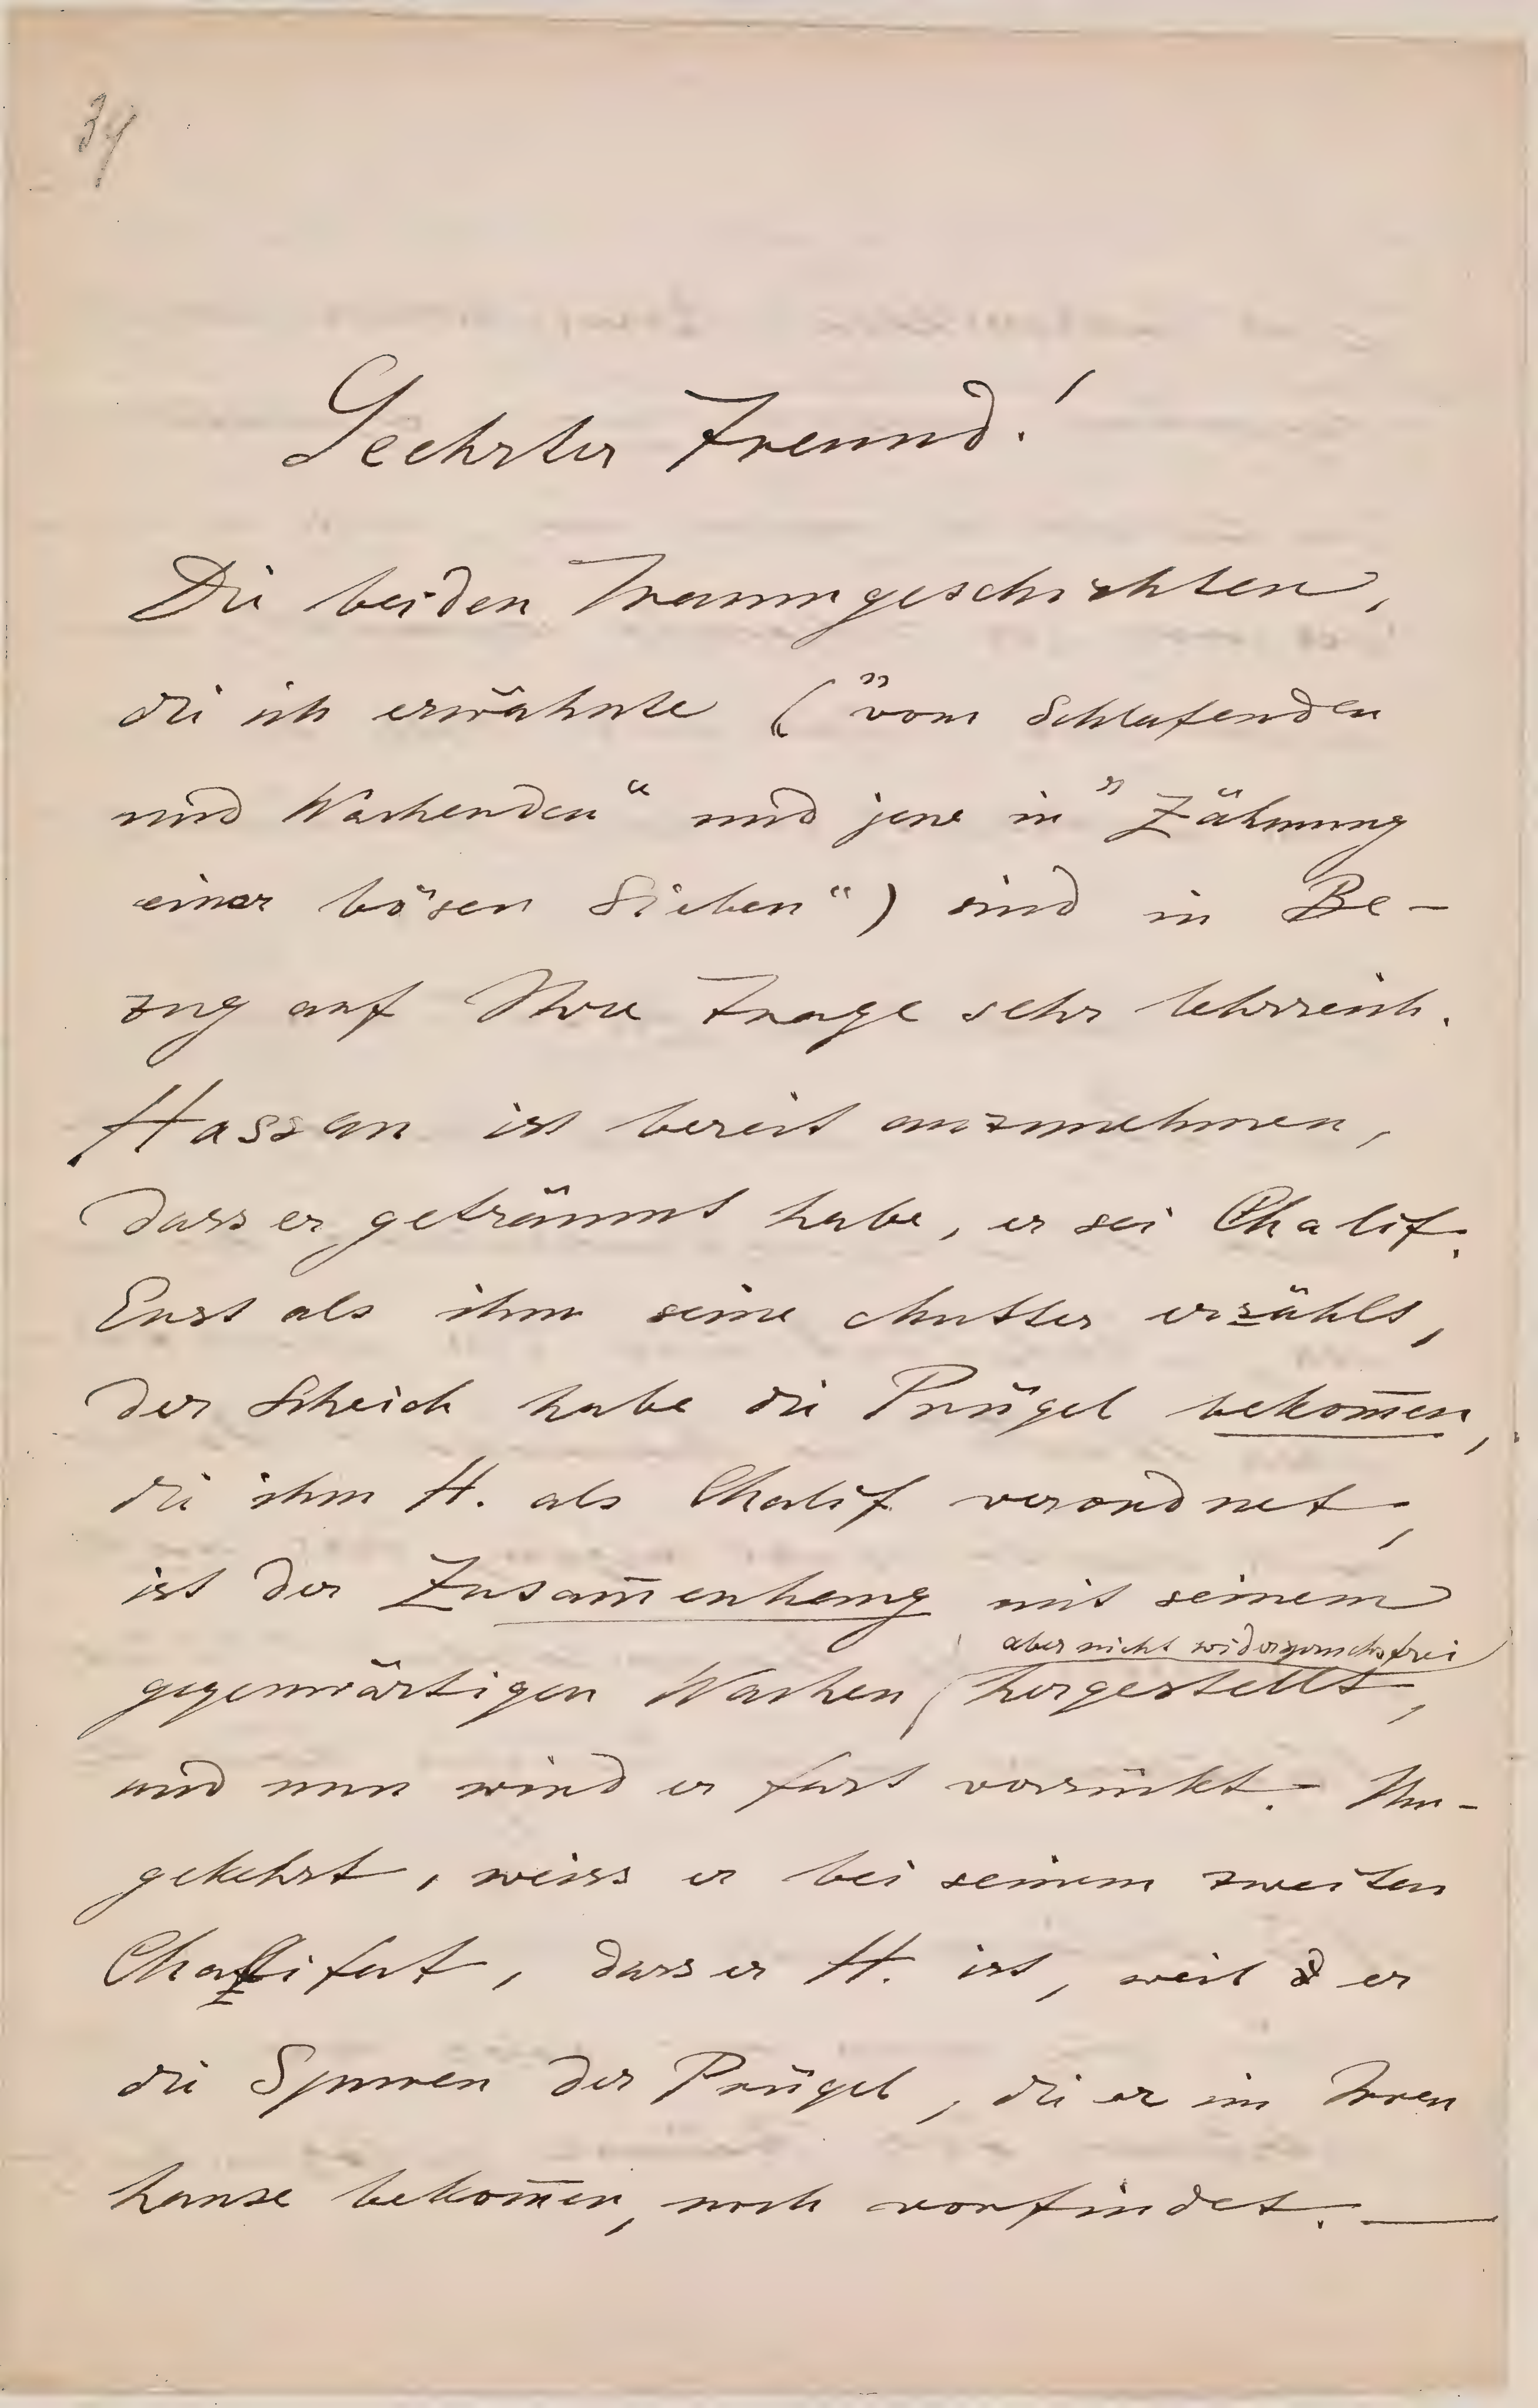 34
Geehrter Freund!
Die beiden Traumgeschichten,
die ich erwähnte („vom Schlafenden
und Wachenden“ und jene in „Zähmung
einer bösen Sieben“) sind in Be-
zug auf Ihre Frage sehr lehrreich.
Hassan ist bereit anzunehmen,
dass er geträumt habe, er sei Chalif.
Erst als ihm seine Mutter erzählt,
der Scheich habe die Prügel bekom̅en,
die ihm H. als Chalif verordnet,
ist der Zusam̅enhang mit seinem
aber nicht widerspruchsfrei
gegenwärtigen Wachen hergestellt,
und nun wird er fast verrückt. Um-
gekehrt, weiss er bei seinem zweiten
Chalifat, dass er H. ist, weil er
die Spuren der Prügel, die er im Irren
hause bekom̅en, noch vorfindet. —